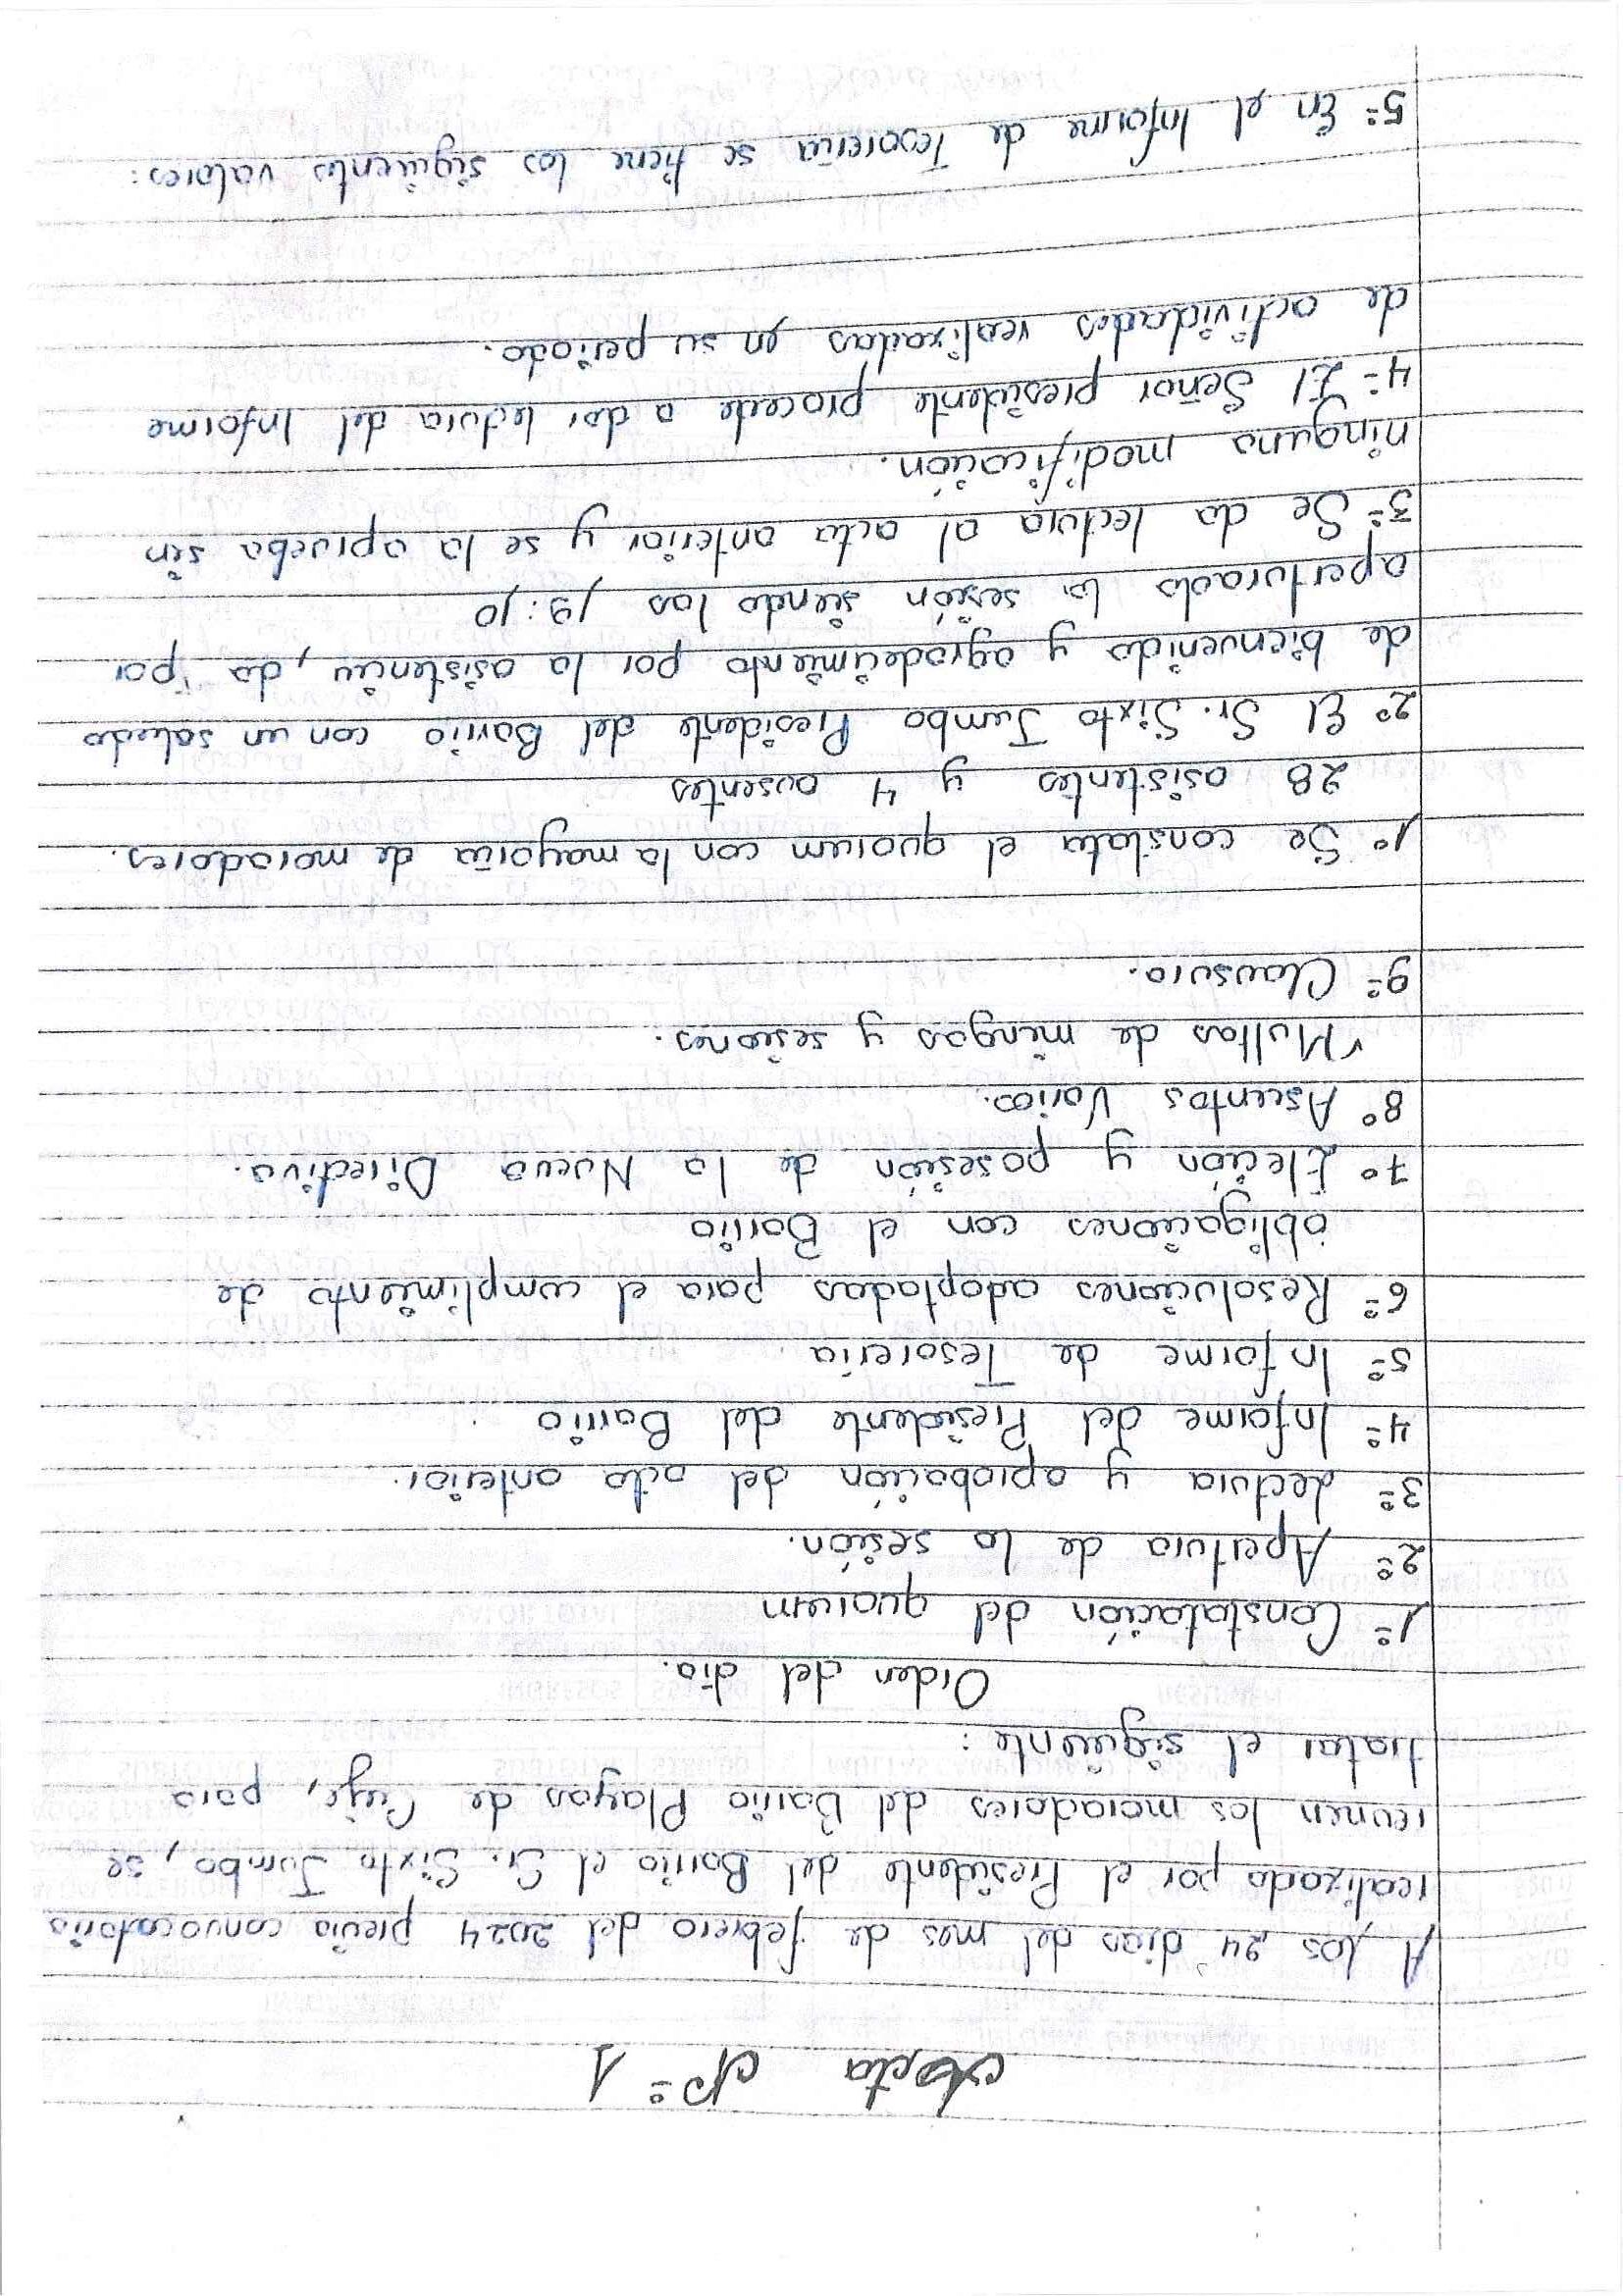 Acta Nº 1
A los 24 días del mes de febrero del 2024 previa convocatoria
realizada por el Presidente del Barrio el Sr. Sixto Jumbo, se
reunen los moradores del Barrio Playas de Cuje, para
tratar el siguiente:
Orden del día.
1º Constatación del quorum
2º Apertura de la sesión.
3º Lectura y aprobación del acta anterior.
4º Informe del Presidente del Barrio
5º Informe de Tesorería
6º Resoluciones adoptadas para el cumplimiento de
obligaciones con el Barrio
7º Eleción y posesión de la Nueva Directiva.
8º Asentos Varios.
Multas de mingas y sesiones.
9º Clausura.
1º Se constata el quorum con la mayoría de moradores.
28 asistentes y 4 ausentes
2º El Sr. Sixto Jumbo Presidente del Barrio con un saludo
de bienvenida y agradecimiento por la asistencia, da por
aperturada la sesión siendo las 19:10
3º Se da lectura al acta anterior y se la aprueba sin
ninguna modificación.
4º El Señor presidente procede a dar lectura del Informe
de actividades realizadas en su período.
5º En el Informe de Tesorería se tiene los siguientes valores: